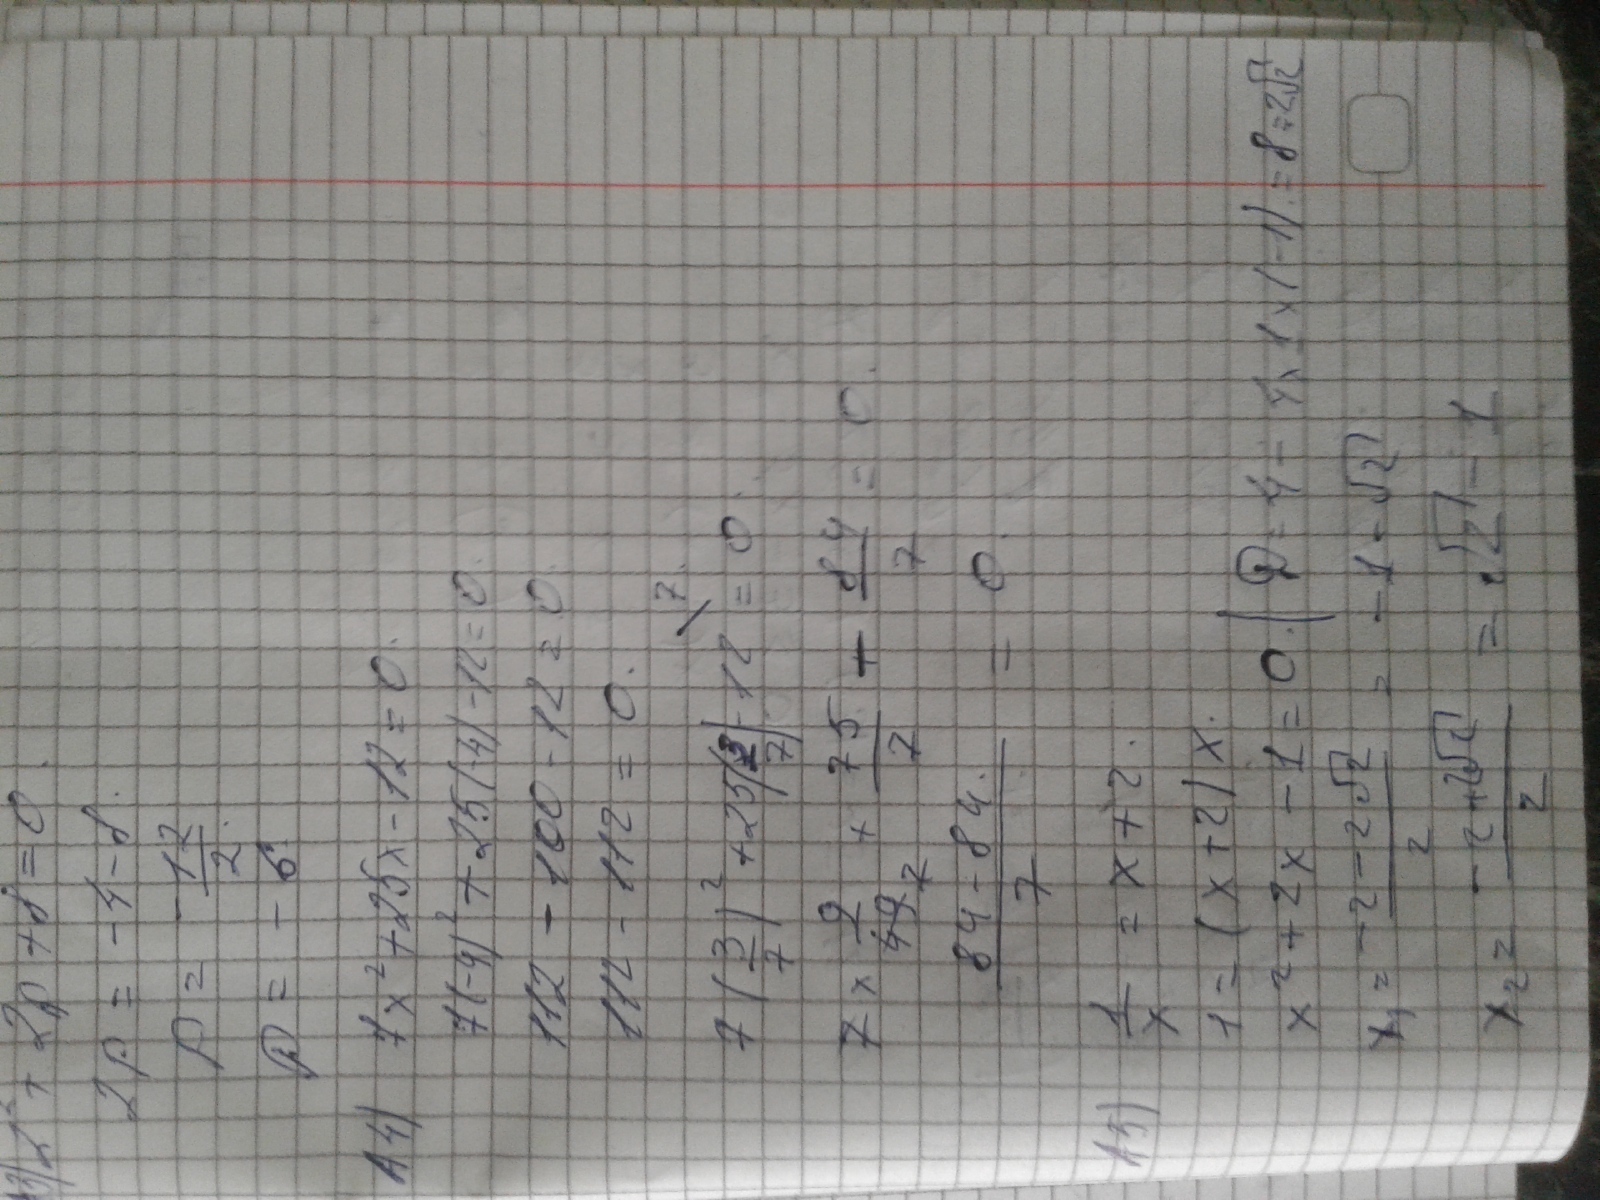 А3) 2² + 2p + 8 = 0.
2p = -4 - 8.
p = -12/2.
p = -6.
А4) 7x² + 25x - 12 = 0.
7(-4)² + 25(-4) - 12 = 0.
112 - 100 - 12 = 0.
112 - 112 = 0.
7(3/7)² + 25(3/7) - 12 \7 = 0.
7 x 9/49 7 + 75/7 + 84/7 = 0.
84 - 84./7 = 0.
А5) 1/x = x + 2.
1 = (x + 2) x.
x² + 2x - 1 = 0. | D = 4 - 4 x 1 x (-1) = 8 = 2√2
x₁ = -2 - 2√2/2 = -1 - √2
x₂ = -2 + 2√2/2 = √2 - 1